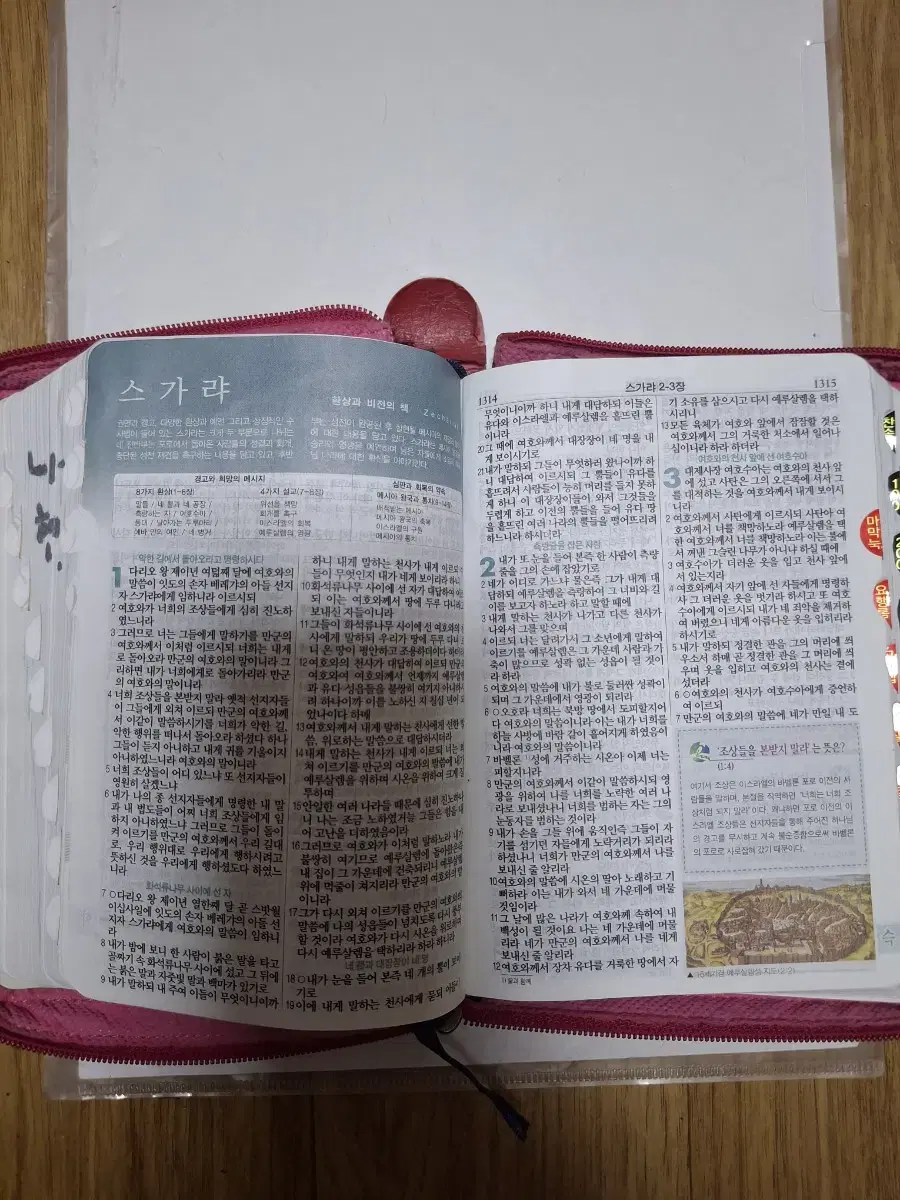 스가랴
환상과 비전의 책
나
현
경고와 희망의 메시지
8가지 환상(1-6장)
4가지 설교(7-8장)
심판과 회복의 약속
이스라엘의 회복
예루살렘의 영광
악한 길에서 돌아오라고 명령하시다
1 다리오 왕 제이년 여덟째 달에 여호와의
말씀이 잇도의 손자 베레갸의 아들 선지
자 스가랴에게 임하니라 이르시되
2 여호와가 너희의 조상들에게 심히 진노하
였느니라
3 그러므로 너는 그들에게 말하기를 만군의
여호와께서 이처럼 이르시되 너희는 내게
로 돌아오라 만군의 여호와의 말이니라 그
리하면 내가 너희에게로 돌아가리라 만군
의 여호와의 말이니라
4 너희 조상들을 본받지 말라 옛적 선지자들
이 그들에게 외쳐 이르되 만군의 여호와께
서 이같이 말씀하시기를 너희가 악한 길,
악한 행위를 떠나서 돌아오라 하셨다 하나
그들이 듣지 아니하고 내게 귀를 기울이지
아니하였느니라 여호와의 말이니라
5 너희 조상들이 어디 있느냐 또 선지자들이
영원히 살겠느냐
6 내가 나의 종 선지자들에게 명령한 내 말
과 내 법도들이 어찌 너희 조상들에게 임
하지 아니하였느냐 그러므로 그들이 돌이
켜 이르기를 만군의 여호와께서 우리 길대
로, 우리 행위대로 우리에게 행하시려고
뜻하신 것을 우리에게 행하셨도다 하였느
니라
화석류나무 사이에 선 자
7 ○다리오 왕 제이년 열한째 달 곧 스밧월
이십사일에 잇도의 손자 베레갸의 아들 선
지자 스가랴에게 여호와의 말씀이 임하니
라
8 내가 밤에 보니 한 사람이 붉은 말을 타고
골짜기 속 화석류나무 사이에 섰고 그 뒤에
는 붉은 말과 자줏빛 말과 백마가 있기로
9 내가 말하되 내 주여 이들이 무엇이니이까
하니 내게 말하는 천사가 내게 이르되
들이 무엇인지 내가 네게 보이리라 하니
10 화석류나무 사이에 선 자가 대답하여
되 이는 여호와께서 땅에 두루 다니라고
보내신 자들이니라
11 그들이 화석류나무 사이에 선 여호와의
12 여호와의 천사가 대답하여 이르되 만군
13 여호와께서 내게 말하는 천사에게 선한
씀, 위로하는 말씀으로 대답하시더라
14 내게 말하는 천사가 내게 이르되 너는 외
쳐 이르기를 만군의 여호와의 말씀에 내가
예루살렘을 위하며 시온을 위하여 크게 질
투하며
15 안일한 여러 나라들 때문에 심히 진노하나
니 나는 조금 노하였거늘 그들은 힘을 내
어 고난을 더하였음이라
16 그러므로 여호와가 이처럼 말하노라 내가
불쌍히 여기므로 예루살렘에 돌아왔은즉
내 집이 그 가운데에 건축되리니 예루살렘
위에 먹줄이 쳐지리라 만군의 여호와의
17 그가 다시 외쳐 이르기를 만군의 여호와의
말씀에 나의 성읍들이 넘치도록 다시 풍부
할 것이라 여호와가 다시 시온을 위로하며
다시 예루살렘을 택하리라 하라 하니라
네 뿔과 대장장이 네 명
18 ○내가 눈을 들어 본즉 네 개의 뿔이 보이
기로
19 이에 내게 말하는 천사에게 묻되 이들이
1314
스가랴 2-3장
1315
무엇이니이까 하니 내게 대답하되 이들은
유다와 이스라엘과 예루살렘을 흩뜨린 뿔
이니라
20 그 때에 여호와께서 대장장이 네 명을 내
게 보이시기로
21 내가 말하되 그들이 무엇하러 왔나이까 하
니 대답하여 이르시되 그 뿔들이 유다를
흩뜨려서 사람들이 능히 머리를 들지 못하
게 하니 이 대장장이들이 와서 그것들을
두렵게 하고 이전의 뿔들을 들어 유다 땅
을 흩뜨린 여러 나라의 뿔들을 떨어뜨리려
하느니라 하시더라
측량줄을 잡은 사람
2 내가 또 눈을 들어 본즉 한 사람이 측량
줄을 그의 손에 잡았기로
2 네가 어디로 가느냐 물은즉 그가 내게 대
답하되 예루살렘을 측량하여 그 너비와 길
이를 보고자 하노라 하고 말할 때에
3 내게 말하는 천사가 나가고 다른 천사가
나와서 그를 맞으며
4 이르되 너는 달려가서 그 소년에게 말하여
이르기를 예루살렘은 그 가운데 사람과 가
축이 많으므로 성곽 없는 성읍이 될 것이
라 하라
5 여호와의 말씀에 내가 불로 둘러싼 성곽이
되며 그 가운데에서 영광이 되리라
6 ○오호라 너희는 북방 땅에서 도피할지어
다 여호와의 말씀이니라 이는 내가 너희를
하늘 사방에 바람 같이 흩어지게 하였음이
니라 여호와의 말씀이니라
7 바벨론 성에 거주하는 시온아 이제 너는
피할지니라
8 만군의 여호와께서 이같이 말씀하시되 영
광을 위하여 나를 너희를 노략한 여러 나
라로 보내셨나니 너희를 범하는 자는 그의
눈동자를 범하는 것이라
9 내가 손을 그들 위에 움직인즉 그들이 자
기를 섬기던 자들에게 노략거리가 되리라
하셨나니 너희가 만군의 여호와께서 나를
보내신 줄 알리라
10 여호와의 말씀에 시온의 딸아 노래하고 기
뻐하라 이는 내가 와서 네 가운데에 머물
것임이라
11 그 날에 많은 나라가 여호와께 속하여 내
백성이 될 것이요 나는 네 가운데에 머물
리라 네가 만군의 여호와께서 나를 네게
보내신 줄 알리라
12 여호와께서 장차 유다를 거룩한 땅에서 자
기 소유를 삼으시고 다시 예루살렘을 택하
시리니
13 모든 육체가 여호와 앞에서 잠잠할 것은
여호와께서 그의 거룩한 처소에서 일어나
심이니라 하라 하더라
여호와의 천사 앞에 선 여호수아
3 대제사장 여호수아는 여호와의 천사 앞
에 섰고 사탄은 그의 오른쪽에 서서 그
를 대적하는 것을 여호와께서 내게 보이시
니라
2 여호와께서 사탄에게 이르시되 사탄아 여
호와께서 너를 책망하노라 예루살렘을 택
한 여호와께서 너를 책망하노라 이는 불에
서 꺼낸 그슬린 나무가 아니냐 하실 때에
3 여호수아가 더러운 옷을 입고 천사 앞에
서 있는지라
4 여호와께서 자기 앞에 선 자들에게 명령하
사 그 더러운 옷을 벗기라 하시고 또 여호
수아에게 이르시되 내가 네 죄악을 제거하
여 버렸으니 네게 아름다운 옷을 입히리라
하시기로
5 내가 말하되 정결한 관을 그의 머리에 씌
우소서 하매 곧 정결한 관을 그 머리에 씌
우며 옷을 입히고 여호와의 천사는 곁에
섰더라
6 ○여호와의 천사가 여호수아에게 증언하
여 이르되
7 만군의 여호와의 말씀에 네가 만일 내 도
'조상들을 본받지 말라'는 뜻은?
(1:4)
여기서 조상은 이스라엘의 바벨론 포로 이전의 사
람들을 말하며, 본절을 직역하면 '너희는 너희 조
상처럼 되지 말라'이다. 왜냐하면 포로 이전의 이
스라엘 조상들은 선지자들을 통해 주어진 하나님
의 경고를 무시하고 계속 불순종함으로써 바벨론
의 포로로 사로잡혀 갔기 때문이다.
마
막
눅
요
행
롬
슥